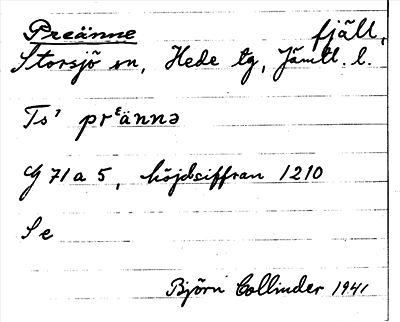 Preänne fjäll,
Storsjö sn, Hede tg, Jämtl. l.
Ts' prᵋännə
G 71 a 5, höjdsiffran 1210
S e
Björn Collinder 1941